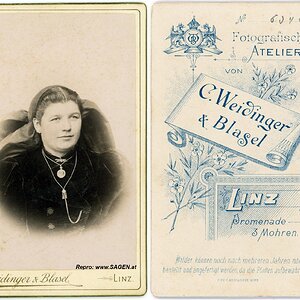 Weidinger & Blasel. LINZ.
Repro: www.SAGEN.at
№ 634
Fotografisch
ATELIER
VON
C. Weidinger
& Blasel
LINZ
Promenade
3 Mohren.
Bilder können noch nach mehreren Jahren
bestellt und angefertigt werden, da die Platten aufbewahrt